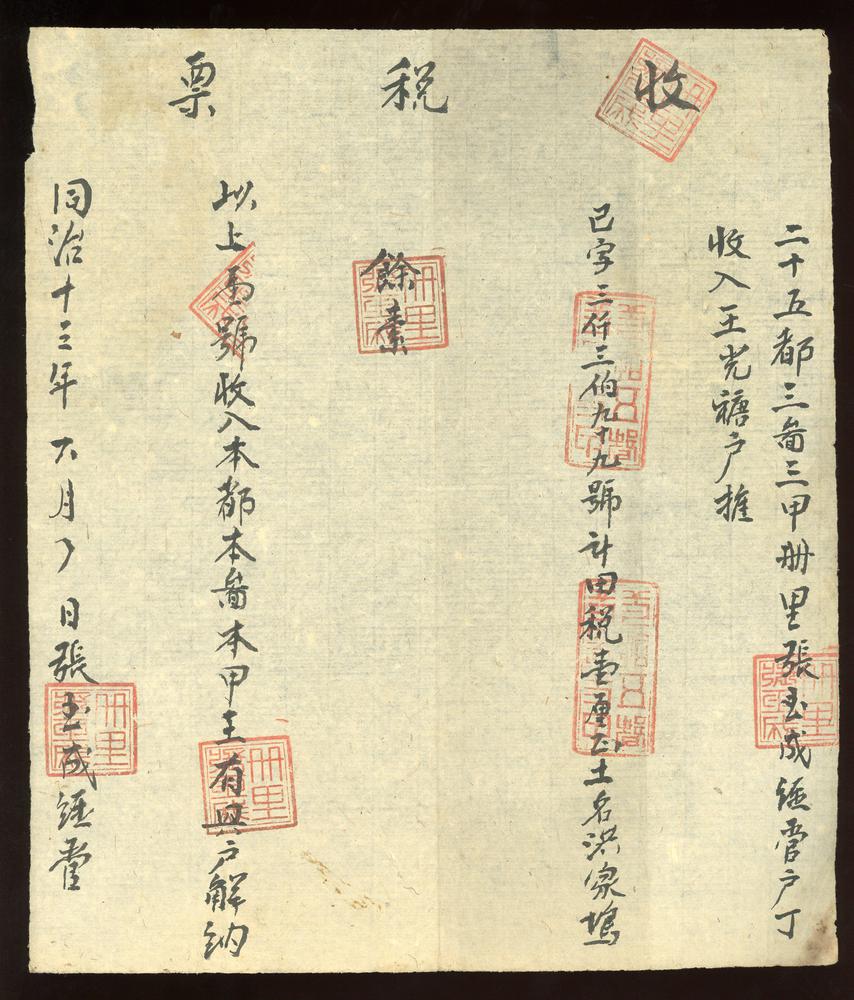 收稅票
二十五都三啚三甲册里張玉成經管户丁
收入王光禟户推
己字三仟三伯九十九號計田税壹厘正土名洪家塢
餘素
以上 號收入本都本啚本甲王有興户解納
同治十三年六月 日張玉成經管
册里
册里
册里
册里
册里